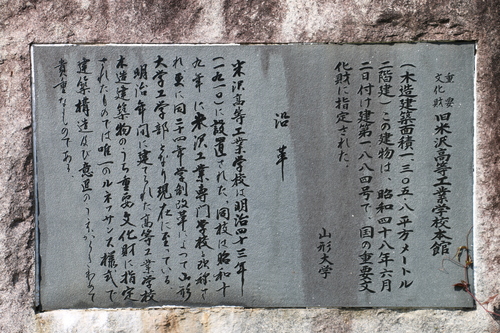 重要
文化財 旧米沢高等工業学校本館
(木造建築面積一、三〇五・八平方メートル
二階建)この建物は、昭和四十八年六月
二日付け建第一八八四号で、国の重要文
化財に指定された。
山形大学
沿革
米沢高等工業学校は明治四十三年
(一九一〇)に設置された。同校は昭和十
九年に米沢工業専門学校と改称さ
れ更に同二十四年学制改革によって山形
大学工学部となり現在に至っている。
明治年間に建てられた高等工業学校
木造建築物のうち重要文化財に指定
されたものでは唯一のルネッサンス様式で
建築構造及び意匠のうえからきわめて
貴重なものである。